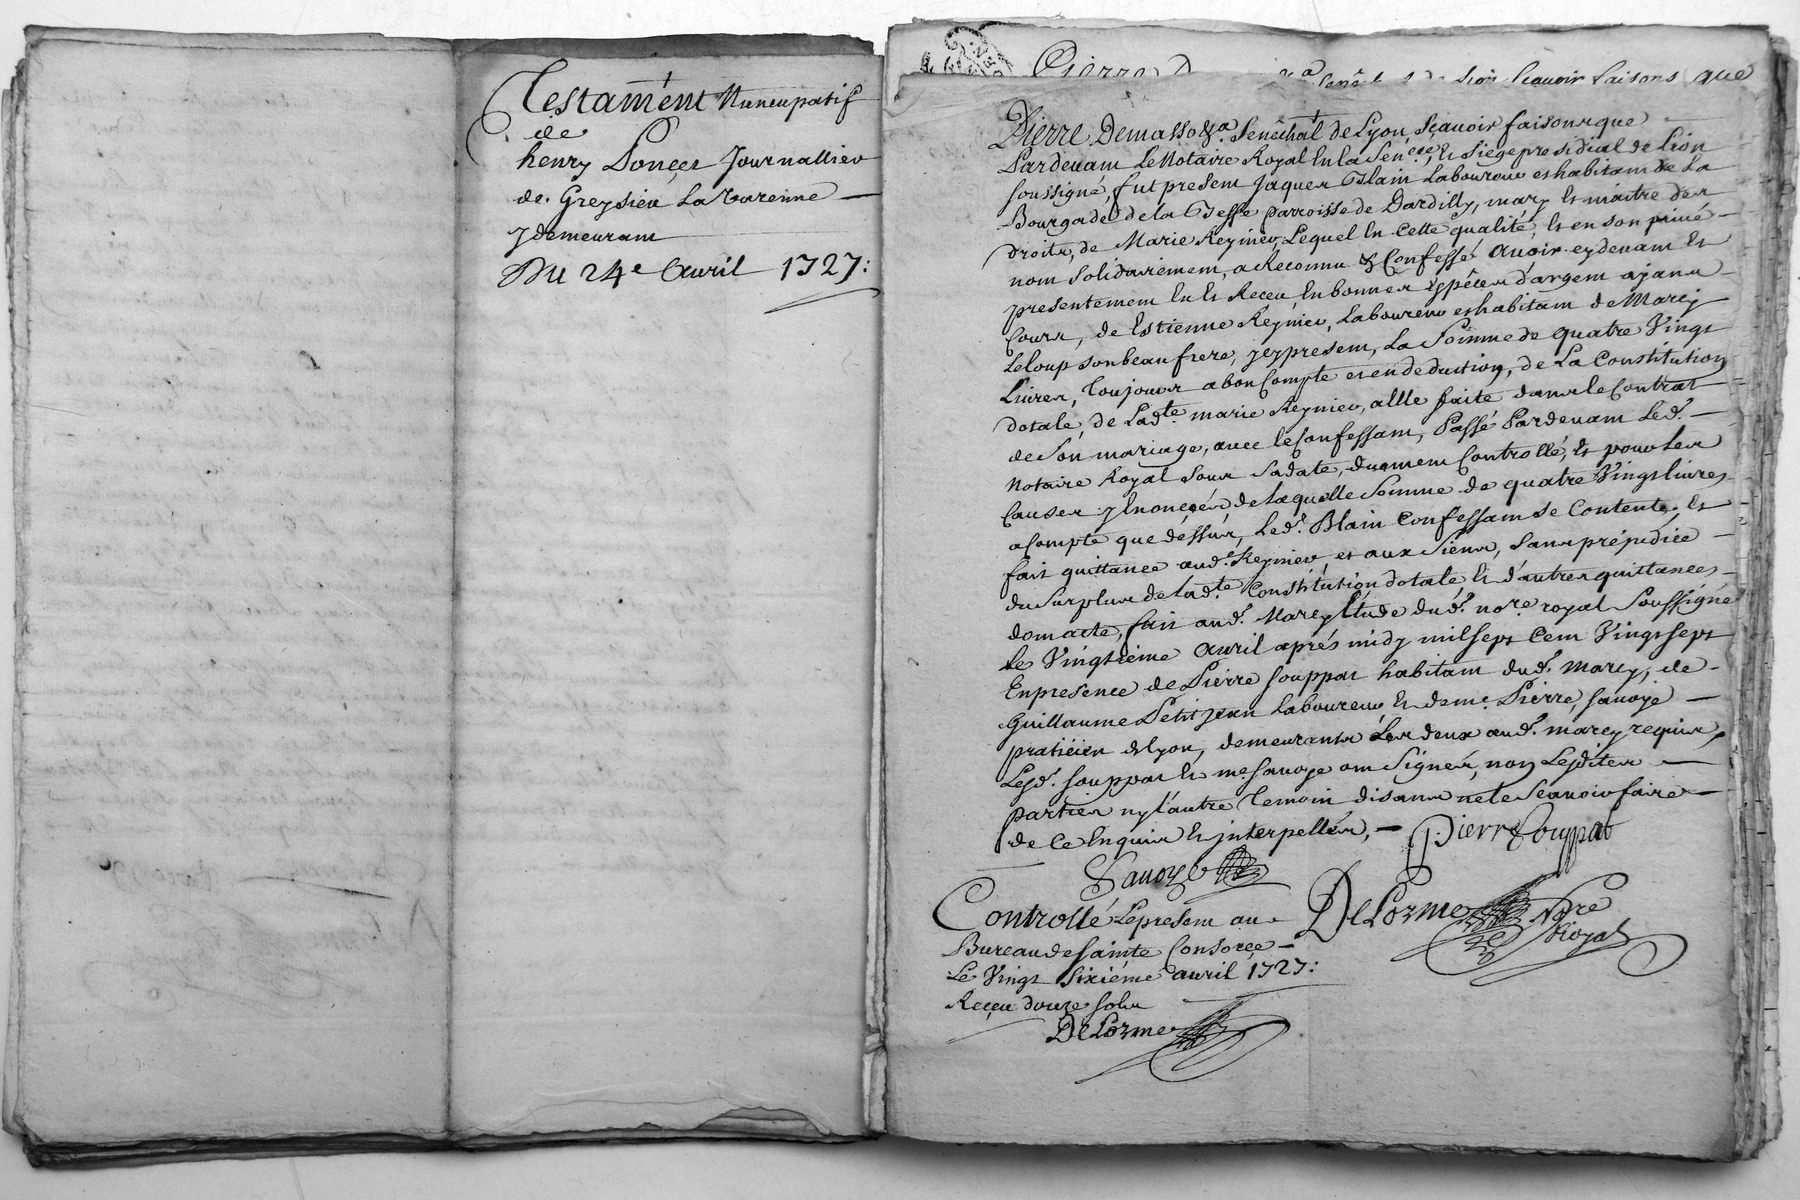 Testament Nuncupatif
de
henry Ponçet Journallier
de Greysieu La Varenne
y demeurant
Du 24e Avril 1727:
Pierre
Sçavoir faisons que
Pierre Demasso &a. Senéchal de Lyon, Sçavoir faisons que
Pardevant Le Notaire Royal En la Sen.cée, Et Siége presidial de Lion
soussigné, fut present Jaques Blain Laboureur et habitant de La
Bourgade de la Besse parroisse de Dardilly, mary Et maitre des
droits, de Marie Reynier, Lequel En Cette qualité, Et en son privé
nom solidairement, a Reconnu & Confessé avoir cydevant Et
presentement Eu Et Receu En bonnes Espéces d'argent ayant
Cours, de Estienne Reynier, Laboureur et habitant de Marcy
Leloup son beau frere, Icy present, La Somme de quatre Vingt
Livres, Toujours a bon Compte et en deduction, de La Constitution
dotale, de Lad.te marie Reynier, a Elle faite dans le Contrat
de Son mariage, avec le Confessant, Passé Pardevant Led.
Notaire Royal sous Sa date, duement Controllé, Et pour les
Causes y Enoncées, de laquelle Somme de quatre Vingt livres
a Compte que dessus, Led. Blain Confessant se Contente, Et
fait quittance aud. Reynier et aux Siens, Sans préjudice
du Surplus de lad.te Constitution dotale, Et d'autres quittances
dont acte, fait aud. Marcy Etude dud. no.re royal Soussigné
Le Vingtiéme Avril aprés midy mil sept Cent Vingt sept
En presence de Pierre souppat habitant dud. Marcy, de
Guillaume Petit Jean laboureur Et de me. Pierre savoye
praticien de Lyon, demeurants Les deux aud. marcy requis,
Led. souppat Et me. savoye ont Signés, non Lesdites
parties ny l'autre Temoin disants ne le Sçavoir faire
de Ce Enquis Et Interpellés,
Pierre Souppat
Savoye
Controllé Le present au
Bureau de sainte Consorce
Le Vingt Sixiéme avril 1727:
Receu douze sols
DeLorme
DeLorme
No.re
Royal